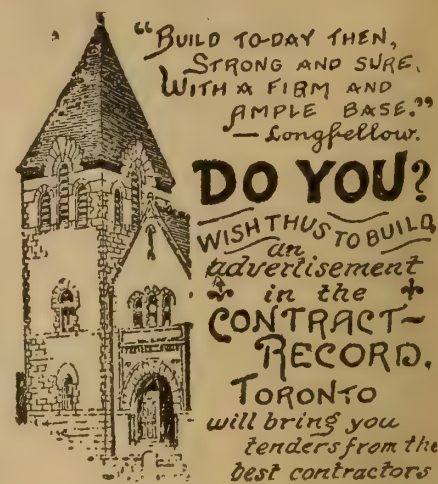 "BUILD TO-DAY THEN,
STRONG AND SURE,
WITH A FIRM AND
AMPLE BASE."
— Longfellow.
DO YOU?
WISH THUS TO BUILD
an
advertisement
in the
CONTRACT-
RECORD,
TORONTO
will bring you
tenders from the
best contractors